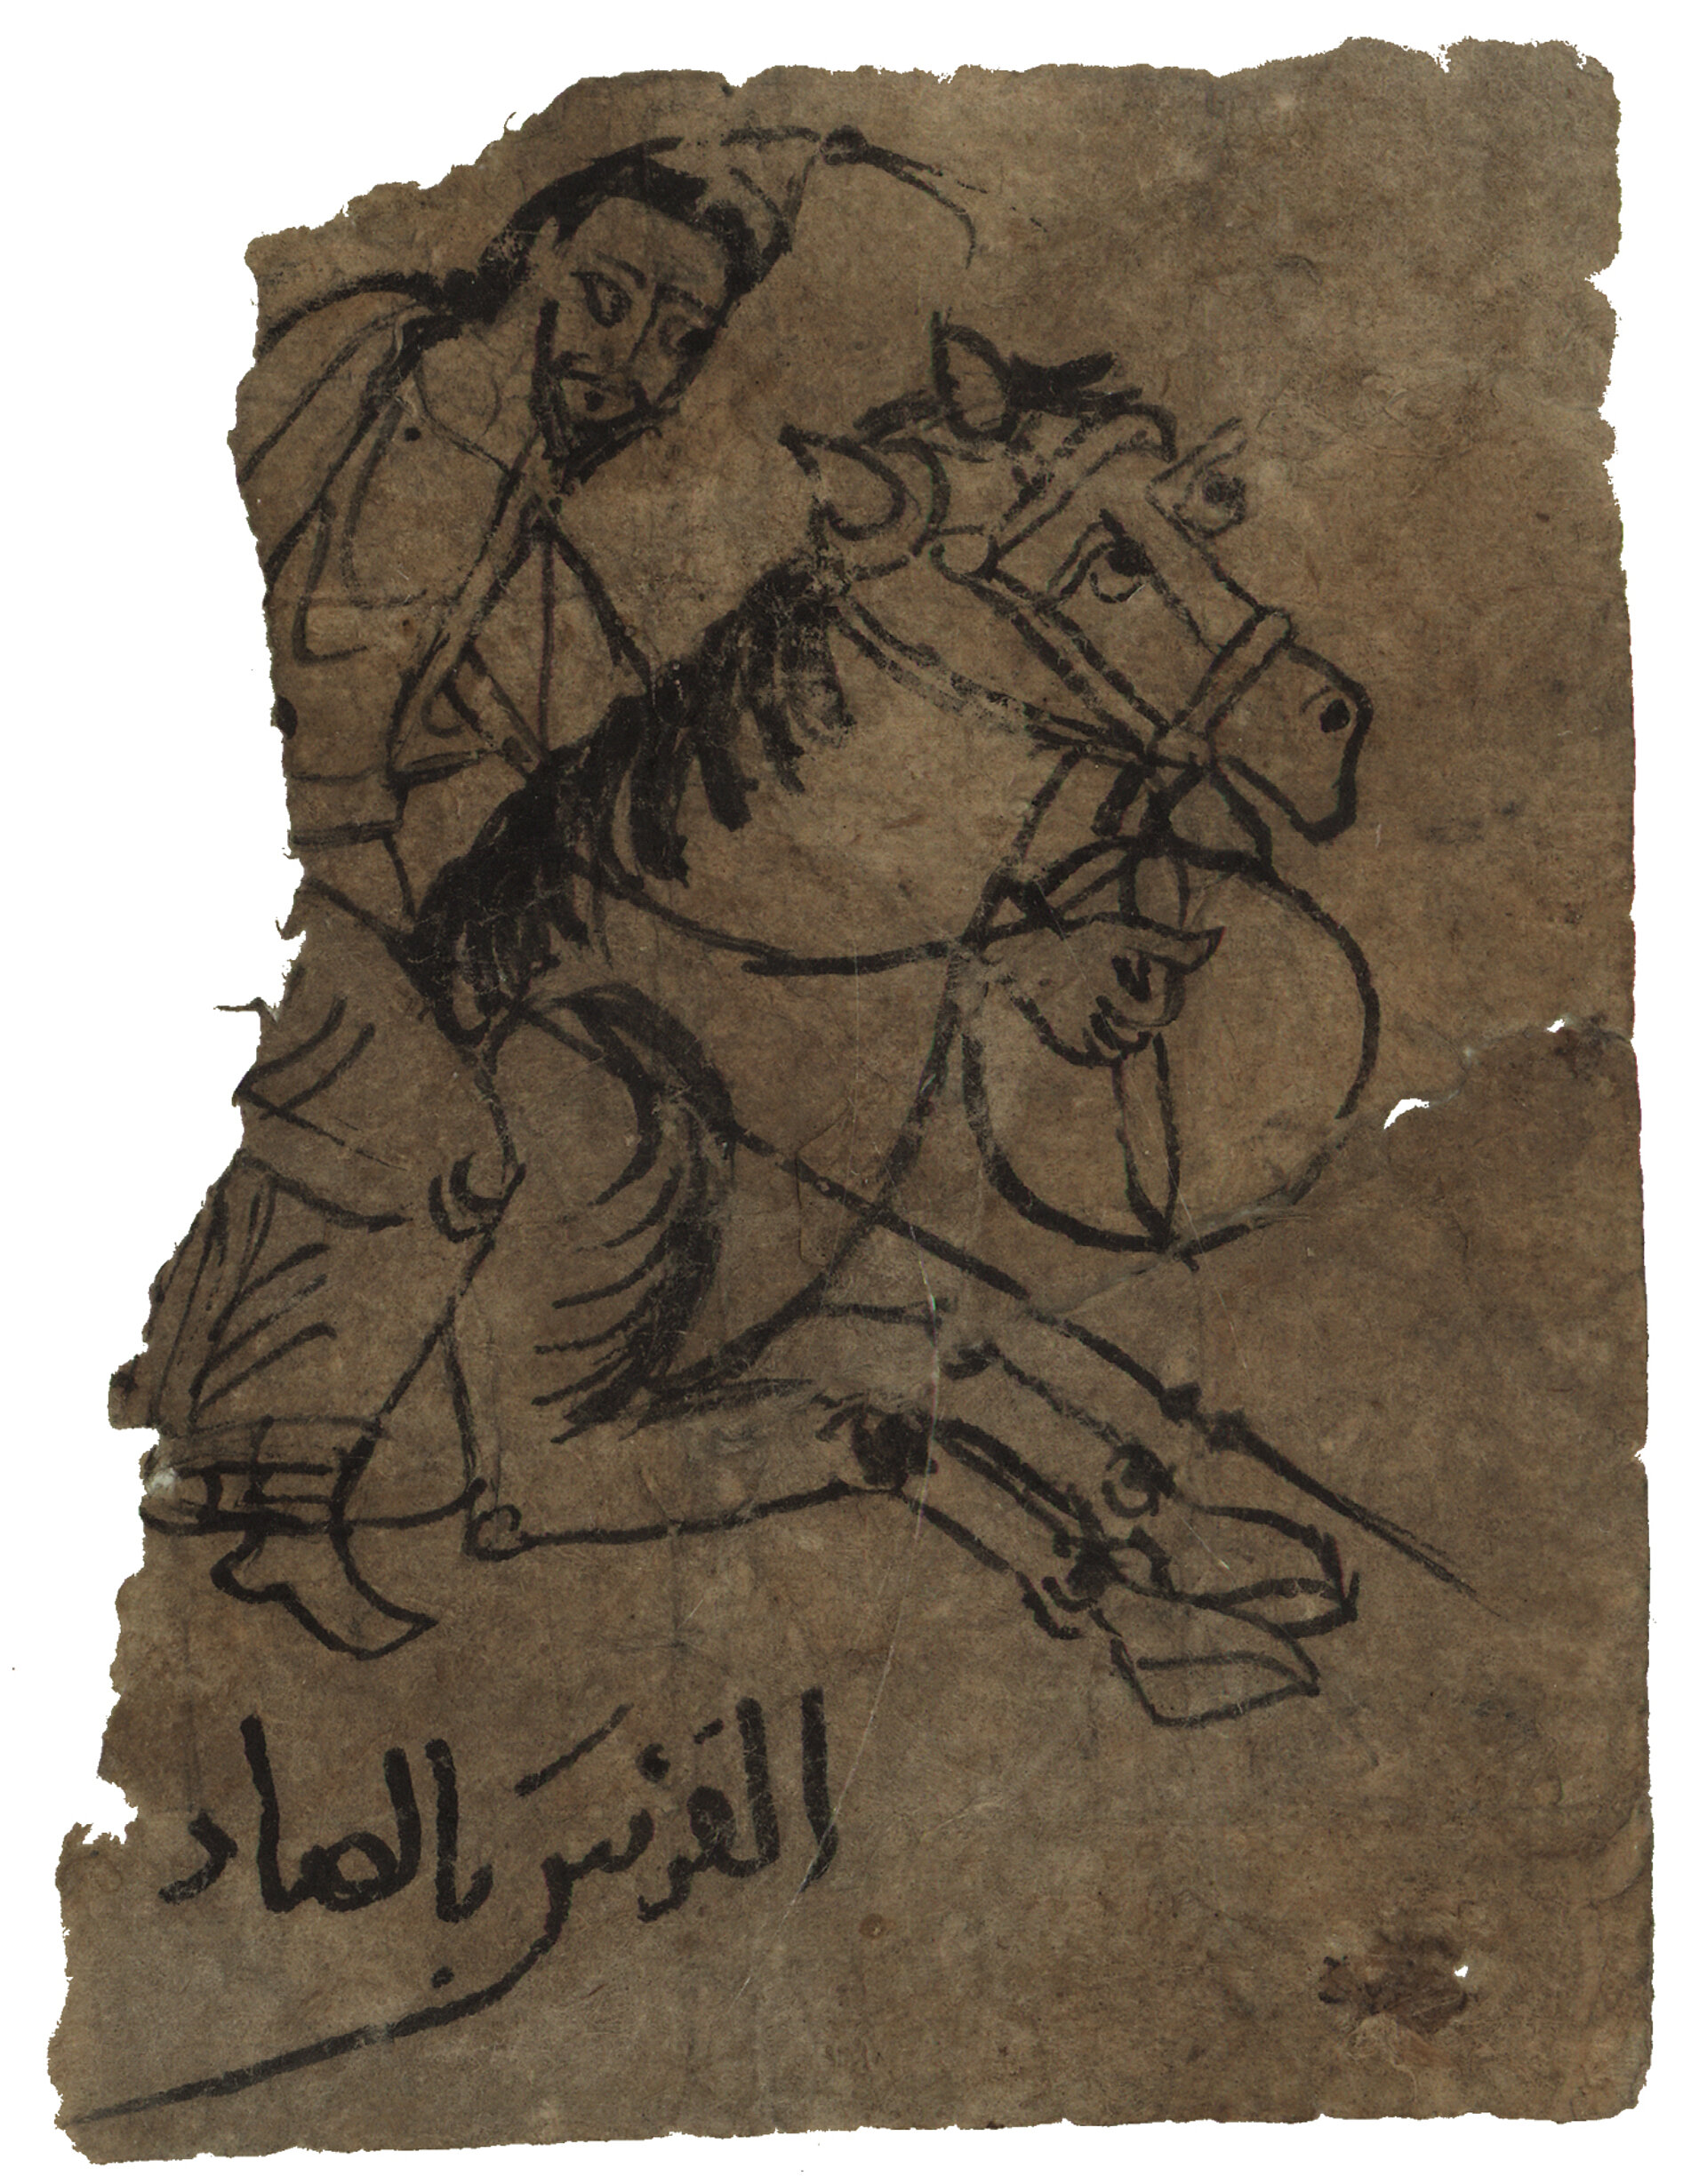 الفَرسَ بالصاد